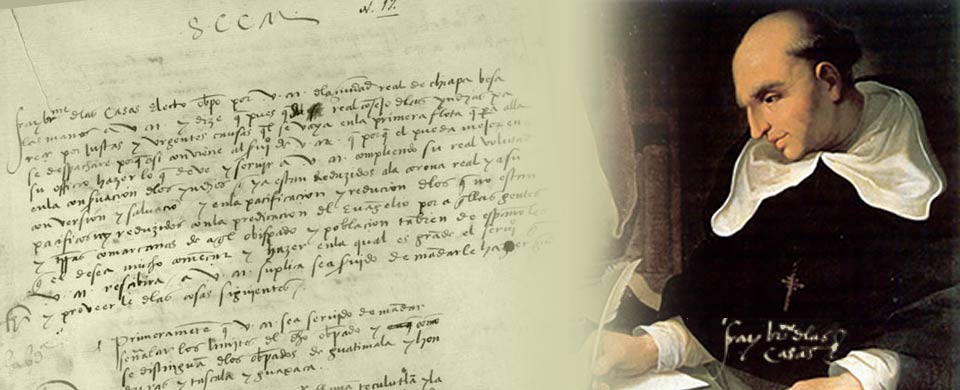 S. C. C. M.
N. 17.
fray br̃me dlas Casas electo obpo por v. m. dla ciudad real de chiapa besa
las manos a v. m. y dize q̃ pues real cosejo dlas yndias pa
reçe por justas y urgentes causas q̃l se vaya enla primera flota q̃ alla
se despachare porq̃ asi conviene al de v. m. porq̃ el pueda mejor en
su officio hazer lo q̃ deve y servir a v. m. compliendo su real volutad
enla dlos yndios ya estan Reduzidos ala corona real y a su
conversion y salvacio y enla pacificacion y reducion dlos q̃ no estan
pacificos ny reduzidos conla predicacion dl Evangelio por a gentes
y comarcanas de aql obispado y poblacion de españoles
q̃ el desea mucho començar y hazer enla qual es grade el
v. m. rescibira a v. m. suplica sea suido de madarle
y proveerle dlas cosas siguientes
Primeramete q̃ v. m. sea servido de madar
señalar los limites del dho obpado y como
se distingua dlos obpados de guatimala y hon
duras y tascala y guaxaca.
teculutlan y la
fray br̃me dlas
casas